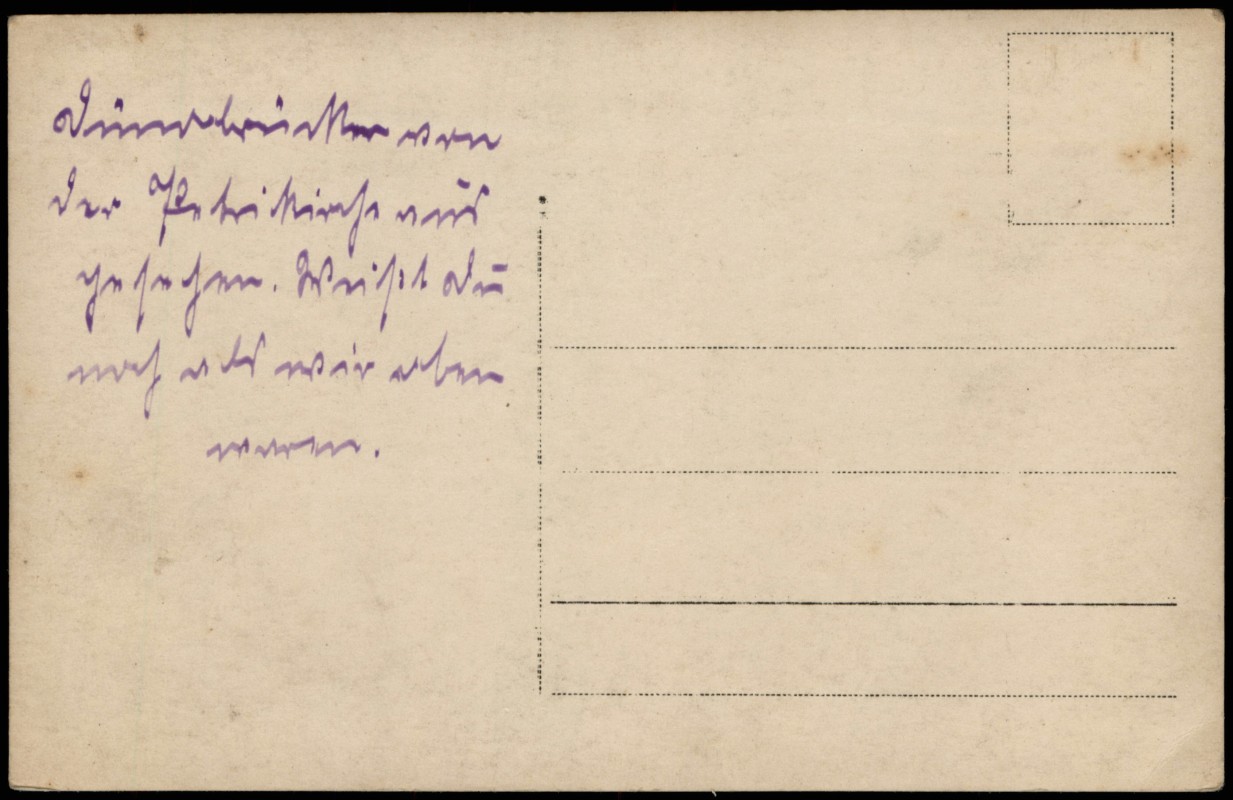 Dünabrücken von
der Petrikirche aus
gesehen. Weißt Du
noch als wir oben
waren.